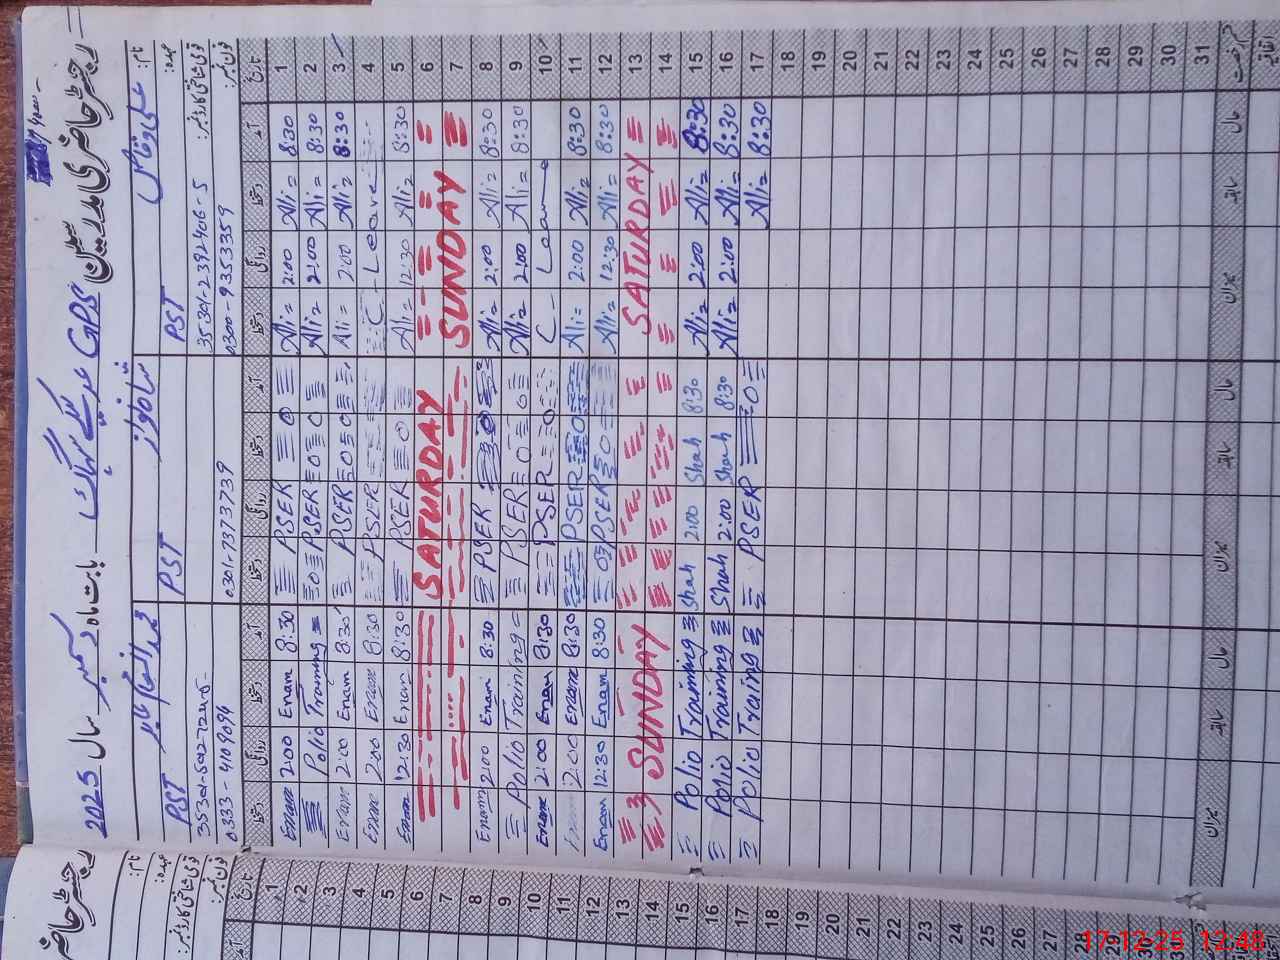 رجسٹر حاضری مدرسین GPS بابت ماہ دسمبر سال 2025
نام:
عہدہ: PST PST PST
قومی شناختی کارڈ نمبر: 35301-2392406-5
فون نمبر: 0300-9353359 0301-7373739 0333-4109094
تاریخ آمد دستخط روانگی دستخط آمد دستخط روانگی دستخط آمد دستخط روانگی دستخط
1 8:30 Ali 2:00 Ali PSER 8:30 Enam 2:00 Enam
2 8:30 Ali 2:00 Ali PSER Polio Training
3 8:30 Ali 2:00 Ali PSER 8:30 Enam 2:00 Enam
4 C - Leave PSER 8:30 Enam 2:00 Enam
5 8:30 Ali 12:30 Ali PSER 8:30 Enam 12:30 Enam
6 SATURDAY
7 SUNDAY
8 8:30 Ali 2:00 Ali PSER 8:30 Enam 2:00 Enam
9 8:30 Ali 2:00 Ali PSER Polio Training
10 C - Leave PSER 8:30 Enam 2:00 Enam
11 8:30 Ali 2:00 Ali PSER 8:30 Enam 2:00 Enam
12 8:30 Ali 12:30 Ali PSER 8:30 Enam 12:30 Enam
13 SATURDAY
14 SUNDAY
15 8:30 Ali 2:00 Ali 8:30 Shah 2:00 Shah Polio Training
16 8:30 Ali 2:00 Ali 8:30 Shah 2:00 Shah Polio Training
17 8:30 Ali PSER Polio Traing
18
19
20
21
22
23
24
25
26
27
28
29
30
31
حال سابقہ میزان حال سابقہ میزان حال سابقہ میزان
رجسٹر حاضری
نام:
عہدہ:
قومی شناختی کارڈ نمبر:
فون نمبر:
تاریخ
1
2
3
4
5
6
7
8
9
10
11
12
13
14
15
16
17
18
19
20
21
22
23
24
25
26
27
28
29
30
17-12-25 12:48